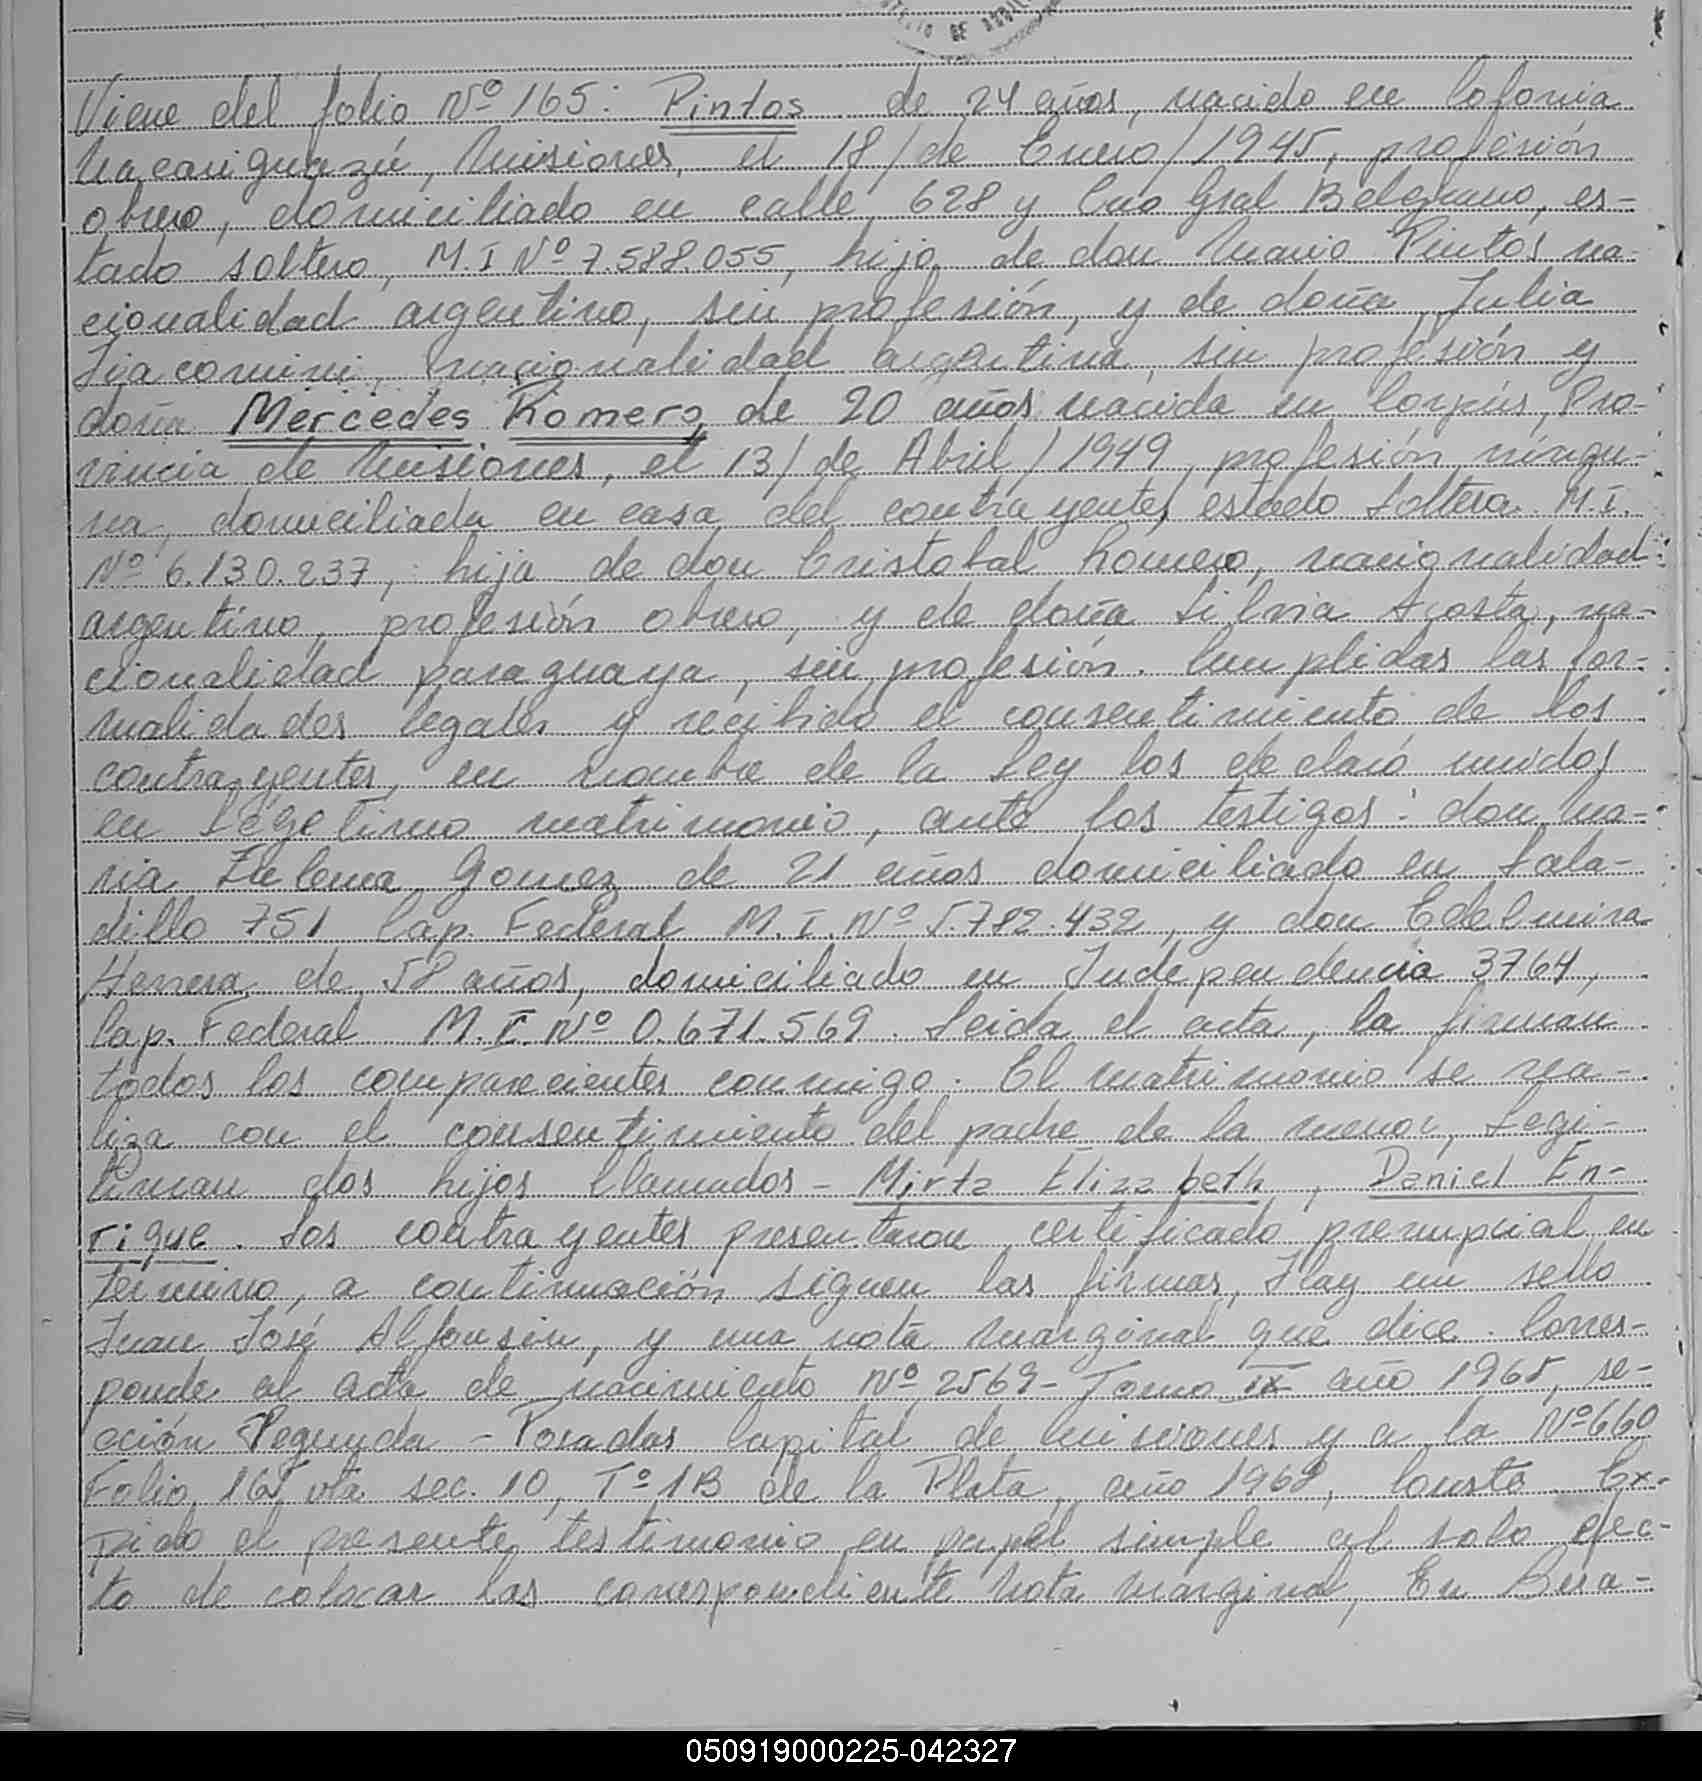 Viene del folio Nº 165: Pintos de 24 años, nacido en Colonia
Yacariguazú, Misiones, el 18/de Enero/1945, profesión
obrero, domiciliado en calle 628 y Cno Gral Belgrano, es-
tado soltero, M.I Nº 7.588.055, hijo de don Mario Pintos na-
cionalidad argentino, sin profesión, y de doña Julia
Jiacomini, nacionalidad argentina, sin profesión y
doña Mercedes Romero, de 20 años nacida en Corpús, Pro-
vincia de Misiones, el 13/de Abril/1949, profesión ningu-
na, domiciliada en casa del contrayente, estado soltera. M.I.
Nº 6.130.237, hija de don Cristobal Romero, nacionalidad
argentino, profesión obrero, y de doña Silvia Acosta, na-
cionalidad paraguaya, sin profesión. Cumplidas las for-
malidades legales y recibido el consentimiento de los
contrayentes, en nombre de la Ley los declaró unidos
en Légetimo matrimonio, ante los testigos: don Ma-
ria Gomez de 21 años domiciliado en Sala-
dillo 751 Cap. Federal M.I. Nº 5.782.432, y don Edelmira
Herrera de 58 años, domiciliado en Independencia 3764,
Cap. Federal M.I. Nº 0.671.569. Leida el acta, la firman
todos los comparecientes conmigo. El matrimonio se rea-
liza con el consentimiento del padre de la menor, Legi-
timan dos hijos llamados - Mirta Elizabeth, Daniel En-
rique. Los contrayentes presentaron certificado prenupcial en
termino, a continuación siguen las firmas, Hay un sello
Juan José Alfonsin, y una nota marginal que dice. Corres-
ponde al acta de nacimiento Nº 2569- Tomo IX año 1965, se-
cción Segunda - Posadas Capital de Misiones y a la Nº 660
Folio 165 vta sec. 10, Tº 1B de la Plata, año 1968, Consta. Ex-
pido el presente testimonio en papel simple al solo efec-
to de colocar las correspondiente Nota marginal, En Bera-
050919000225-042327